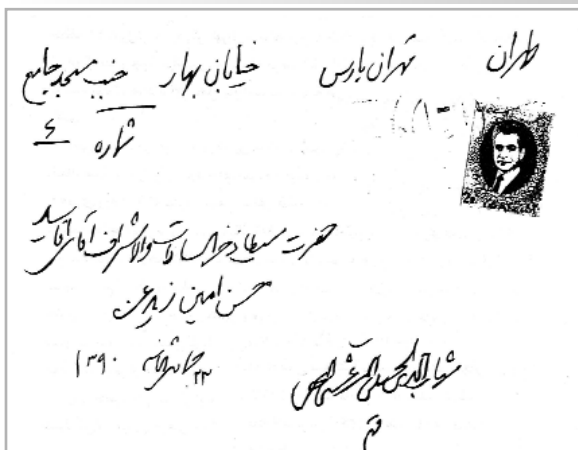 طهران تهران پارس خیابان بهار جنب مسجد جامع
شماره ۶
حضرت مستطاب ذخر السادات والاشراف آقای آقا سید
حسن امین زید عزه
۲۲ ج ۱۳۹۰
شهاب الدین الحسینی المرعشی النجفی
قم